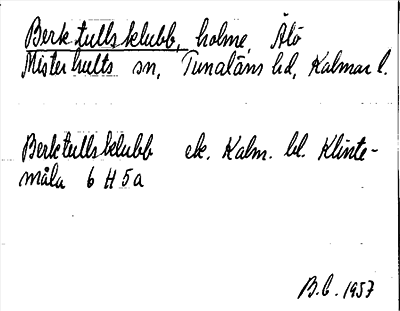 Berktullsklubb, holme, Älö
Misterhults sn, Tunaläns hd, Kalmar l.
Berktullsklubb ek. Kalm. bl. Klinte-
måla 6 H 5a
B.C. 1957